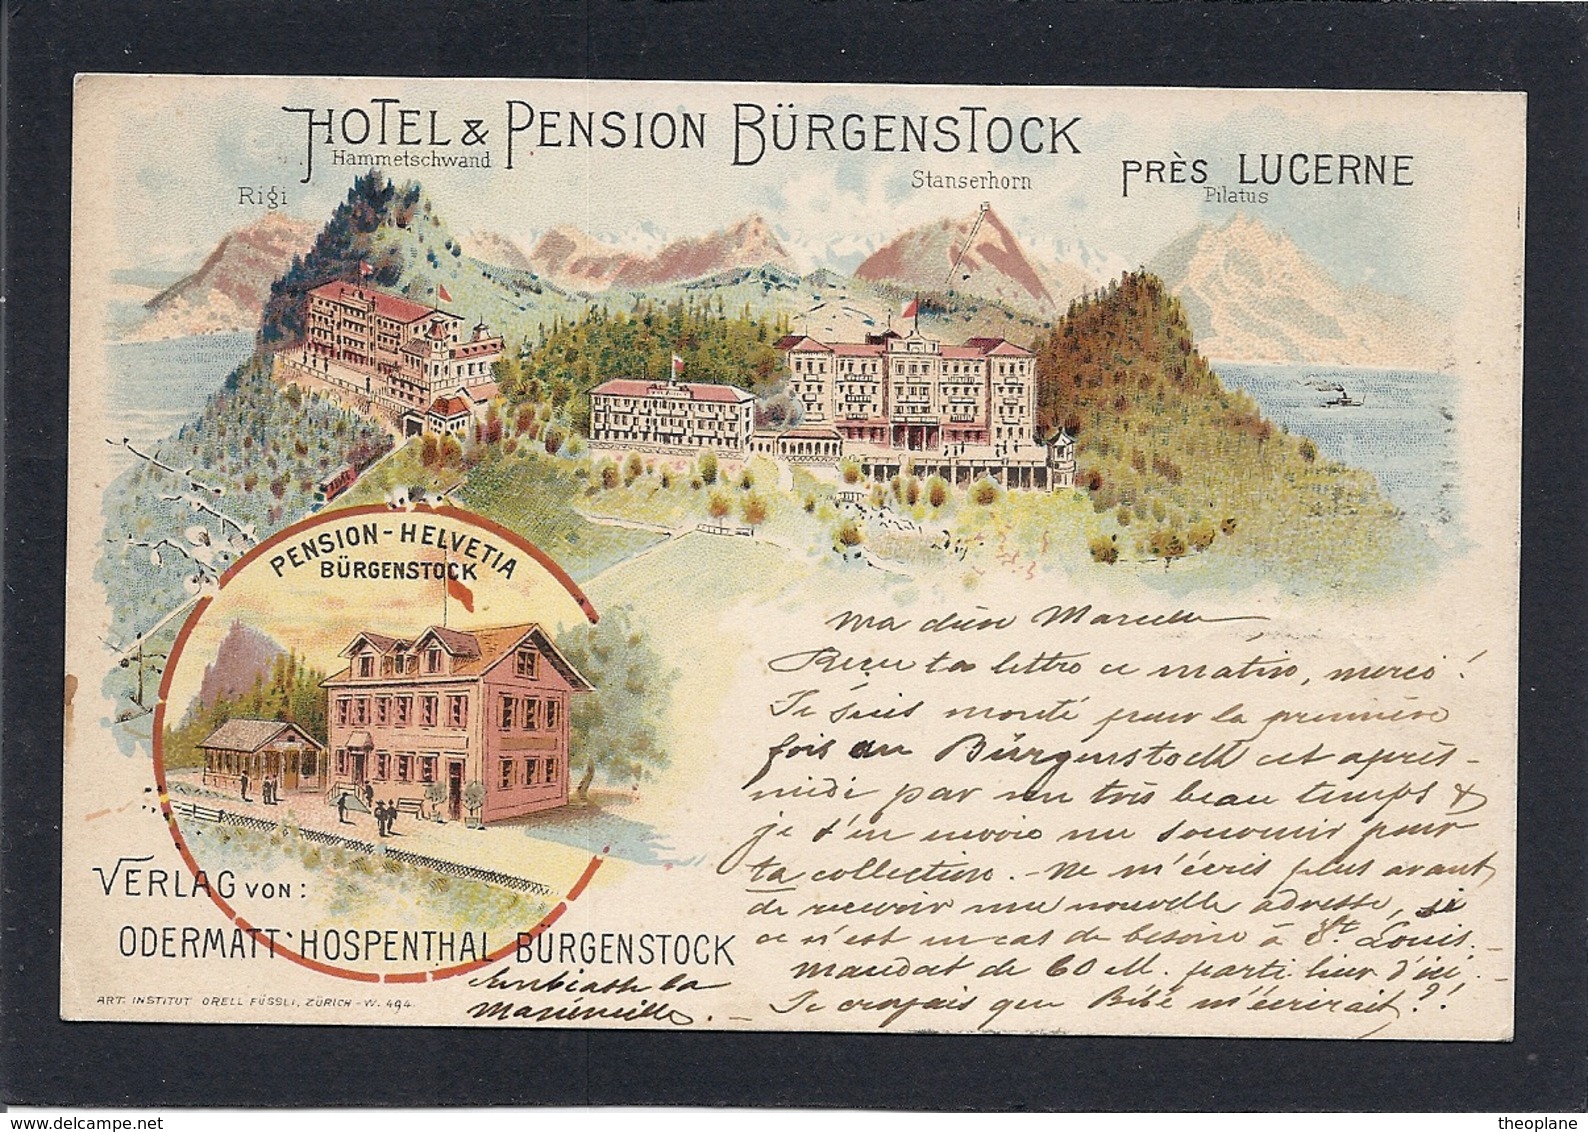 HOTEL & PENSION BÜRGENSTOCK
PRÈS LUCERNE
Hammetschwand
Rigi
Stanserhorn
Pilatus
PENSION-HELVETIA
BÜRGENSTOCK
VERLAG VON:
ODERMATT-HOSPENTHAL BÜRGENSTOCK
ART. INSTITUT ORELL FÜSSLI, ZÜRICH - W. 494.
Ma chère Marcelle
Reçu ta lettre ce matin, merci!
Je suis monté pour la première
fois au Bürgenstock cet après-
midi par un très beau temps &
je t'en envoie un souvenir pour
ta collection. - Ne m'écris plus avant
de recevoir une nouvelle adresse, si
ce n'est en cas de besoin à St. Louis. -
Mandat de 60 M. parti hier d'ici. -
Je croyais que Bébé m'écrirait?!
la
Marieneille. -
theoplane